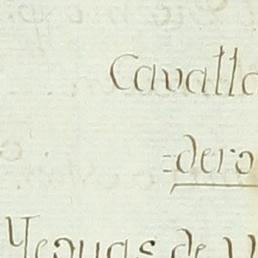 Cavallo
=dero
Yeguas de v